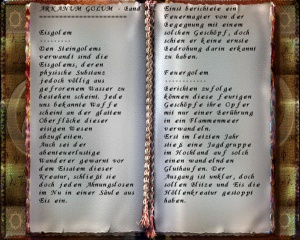 ARKANUM GOLUM - Band
Eisgolem
----------
Den Steingolems
verwandt sind die
Eisgolems, deren
physische Substanz
jedoch völlig aus
gefrorenem Wasser zu
bestehen scheint. Jede
uns bekannte Waffe
scheint an der glatten
Oberfläche dieser
eisigen Wesen
abzugleiten.
Auch sei der
abenteuerlustige
Wanderer gewarnt vor
dem Eisatem dieser
Kreatur, schließt sie
doch jeden Ahnungslosen
im Nu in einer Säule aus
Eis ein.
Einst berichtete ein
Feuermagier von der
Begegnung mit einem
solchen Geschöpf, doch
schien er keine ernste
Bedrohung darin erkannt
zu haben.
Feuergolem
------------
Berichten zufolge
können diese feurigen
Geschöpfe ihre Opfer
mit nur einer Berührung
in ein Flammenmeer
verwandeln.
Erst im letzten Jahr
stieß eine Jagdgruppe
im Hochland auf solch
einen wandelnden
Gluthaufen. Der
Ausgang ist unklar, doch
sollen Blitze und Eis die
Höllenkreatur gestoppt
haben.